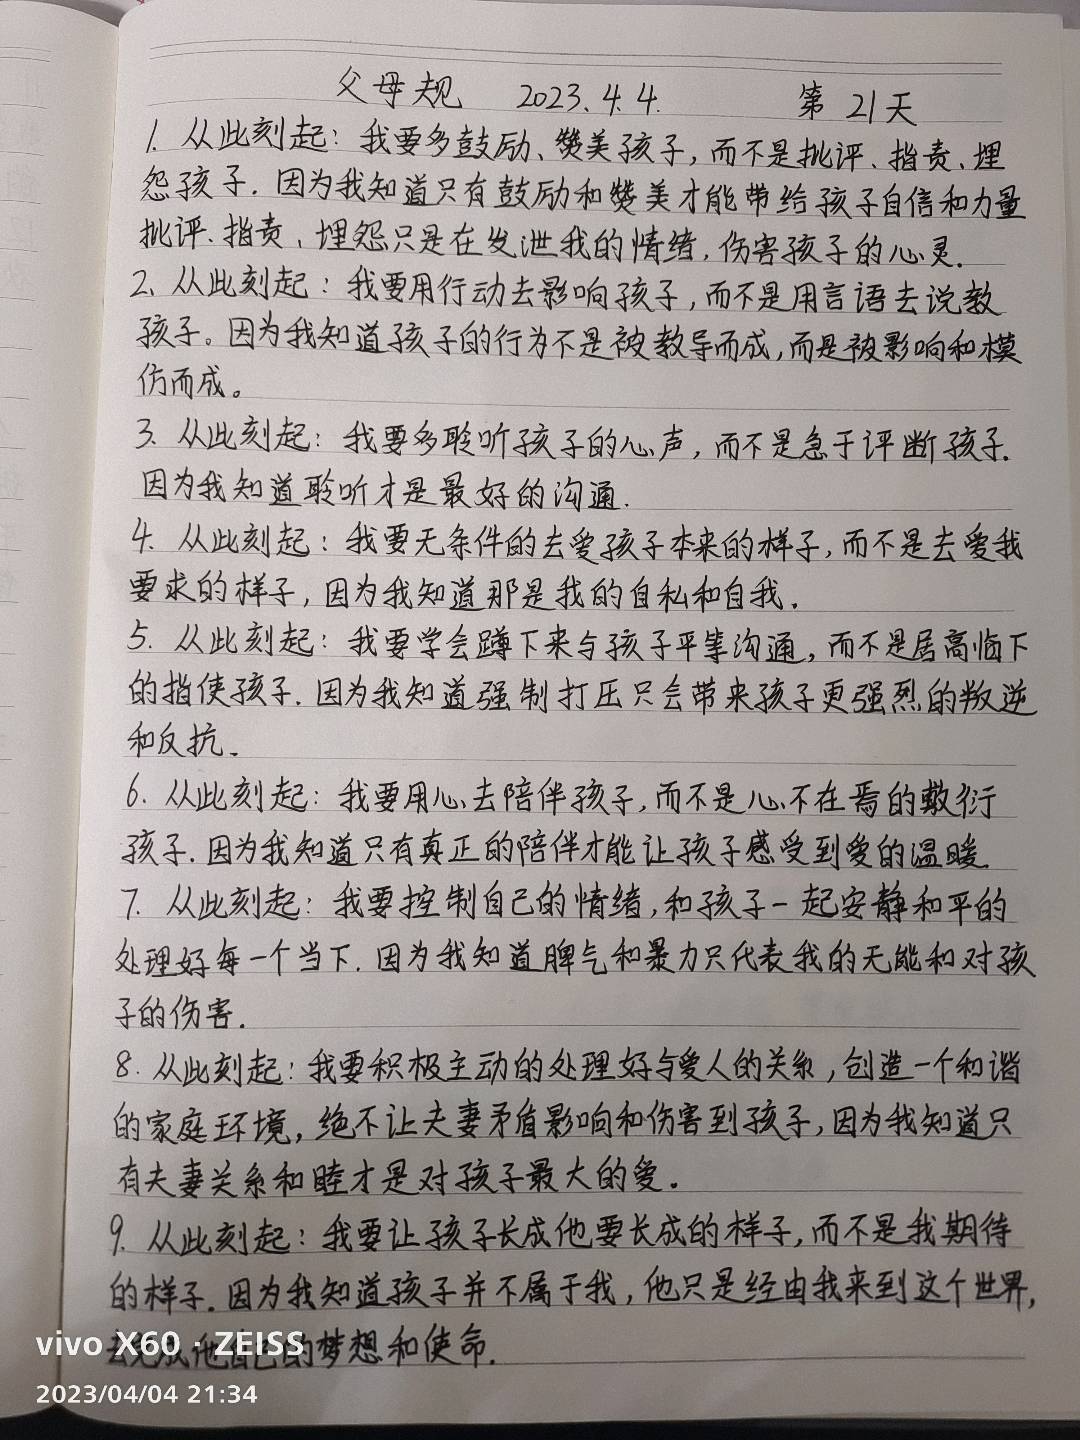 父母规 2023.4.4. 第21天
1. 从此刻起：我要多鼓励、赞美孩子，而不是批评、指责、埋
怨孩子.因为我知道只有鼓励和赞美才能带给孩子自信和力量
批评、指责、埋怨只是在发泄我的情绪,伤害孩子的心灵.
2、从此刻起：我要用行动去影响孩子,而不是用言语去说教
孩子。因为我知道孩子的行为不是被教导而成,而是被影响和模
仿而成。
3. 从此刻起：我要多聆听孩子的心声,而不是急于评断孩子.
因为我知道聆听才是最好的沟通.
4. 从此刻起：我要无条件的去爱孩子本来的样子,而不是去爱我
要求的样子,因为我知道那是我的自私和自我.
5. 从此刻起：我要学会蹲下来与孩子平等沟通,而不是居高临下
的指使孩子.因为我知道强制打压只会带来孩子更强烈的叛逆
和反抗.
6. 从此刻起：我要用心去陪伴孩子,而不是心不在焉的敷衍
孩子.因为我知道只有真正的陪伴才能让孩子感受到爱的温暖.
7. 从此刻起：我要控制自己的情绪,和孩子一起安静和平的
处理好每一个当下.因为我知道脾气和暴力只代表我的无能和对孩
子的伤害.
8. 从此刻起：我要积极主动的处理好与爱人的关系,创造一个和谐
的家庭环境,绝不让夫妻矛盾影响和伤害到孩子,因为我知道只
有夫妻关系和睦才是对孩子最大的爱.
9. 从此刻起：我要让孩子长成他要长成的样子,而不是我期待
的样子.因为我知道孩子并不属于我,他只是经由我来到这个世界,
去完成他自己的梦想和使命.
vivo X60 · ZEISS
2023/04/04 21:34